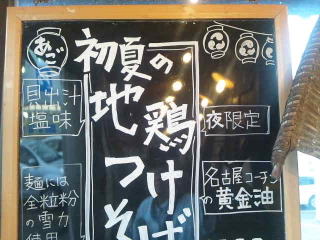 初夏の
地鶏
つけ
そば
あご
貝出汁
塩味
夜限定
名古屋コーチン
の黄金油
麺には
全粒粉
の雪力
使用